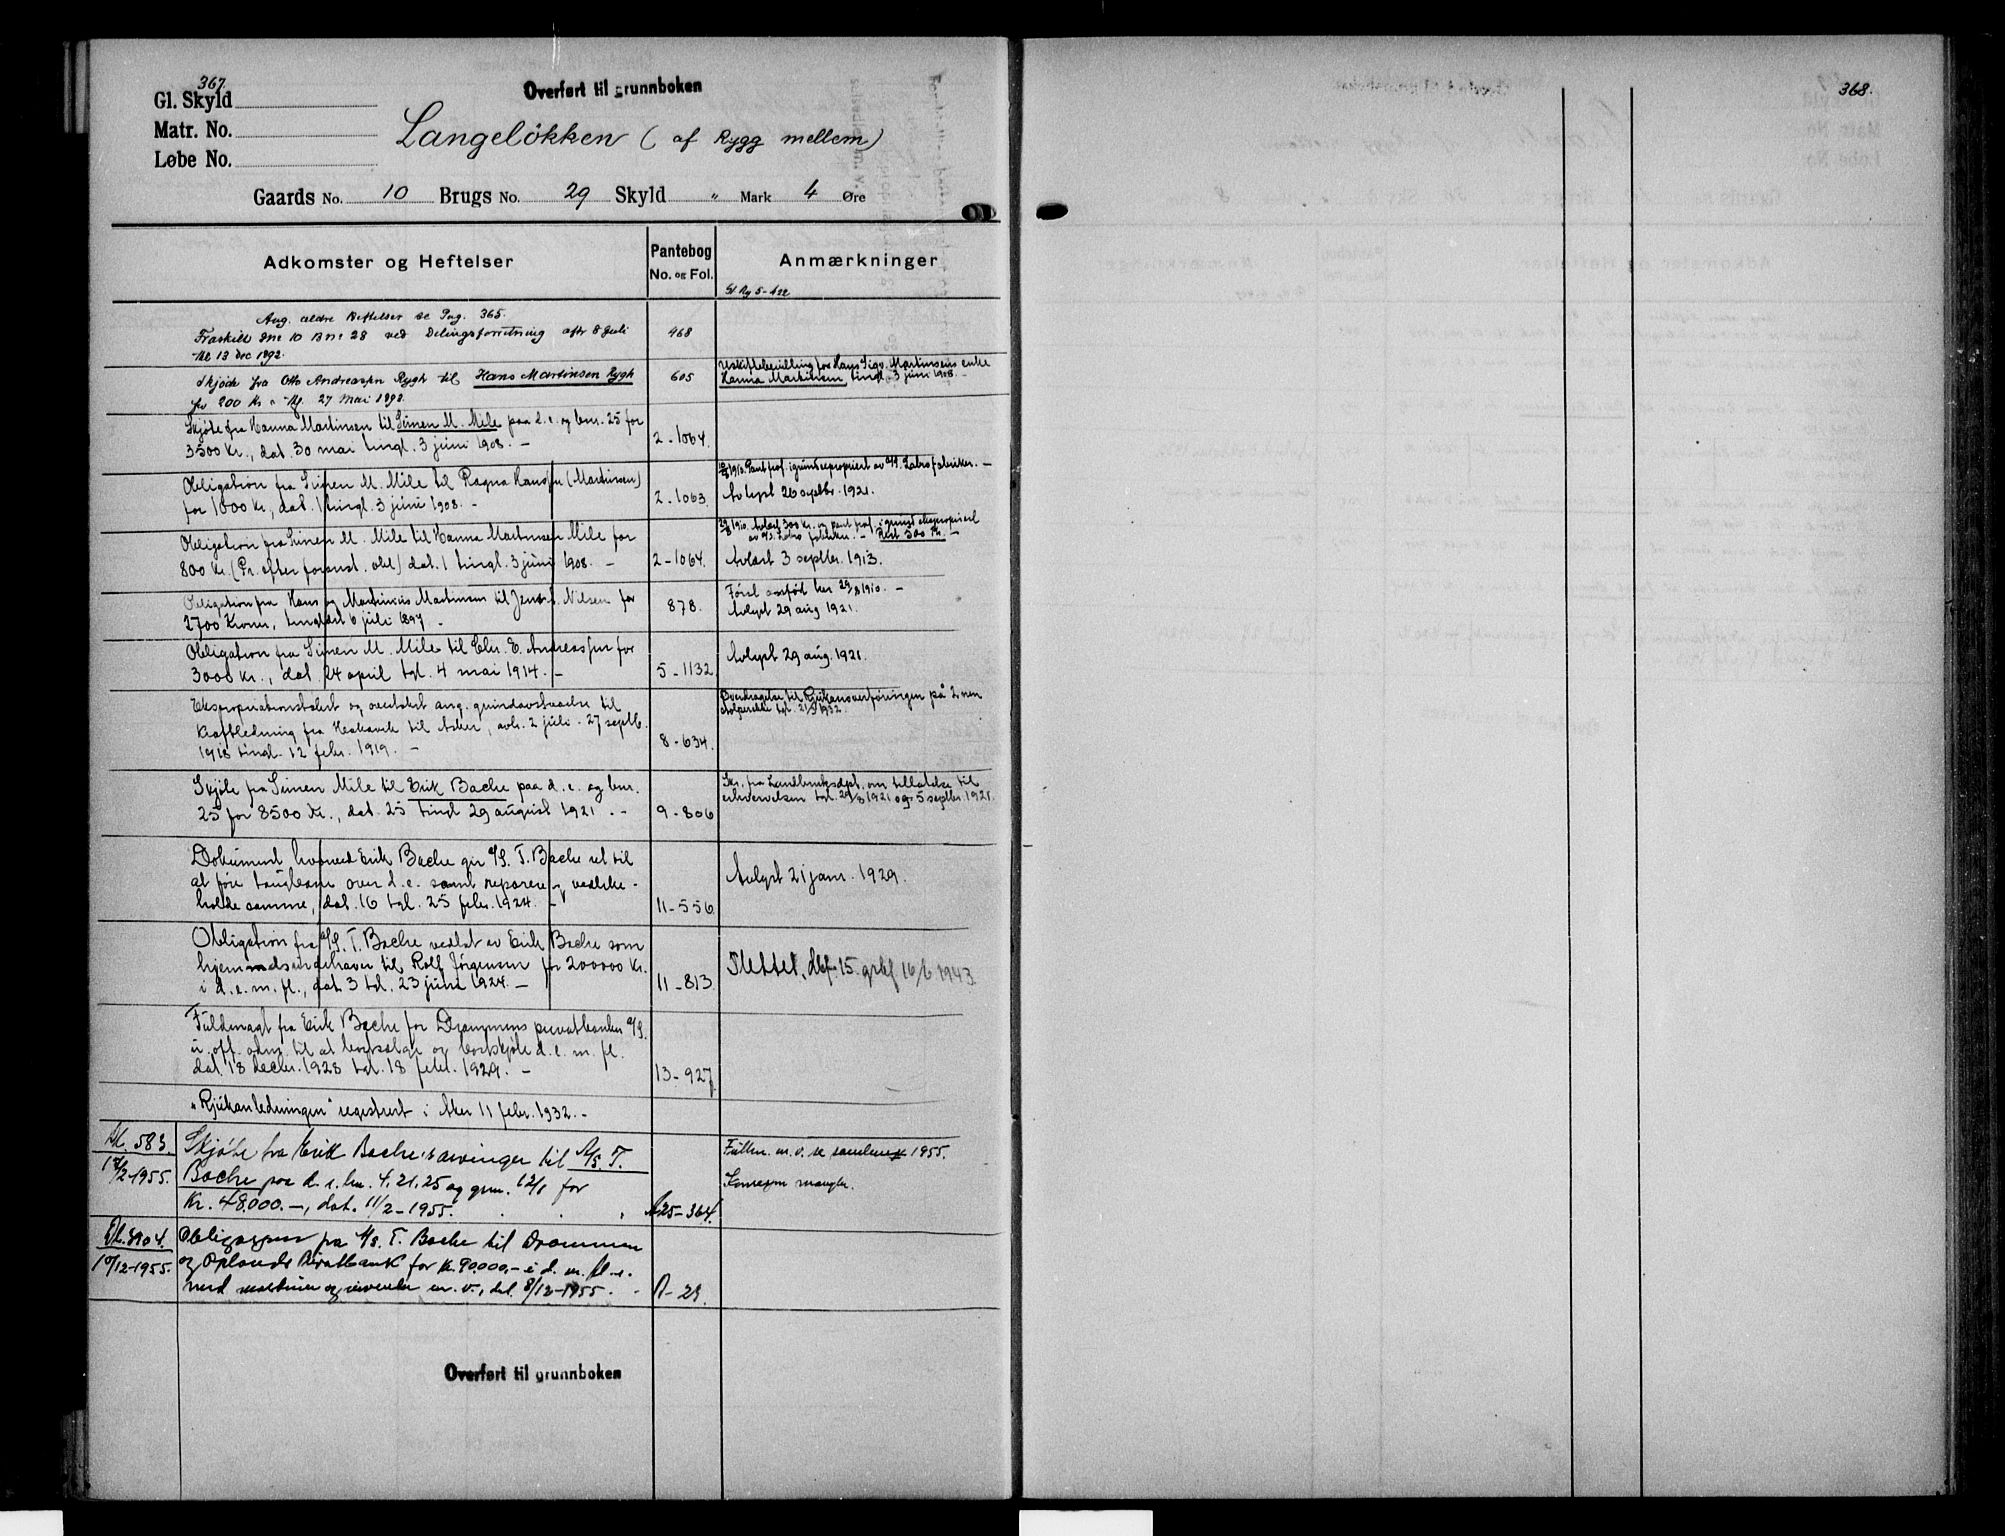 367.
Overført til grunnboken
Gl. Skyld
Matr. No.
Løbe No.
Langeløkken (af Rygg mellem)
Gaards No. 10 Brugs No. 29 Skyld " Mark 4 Øre
Adkomster og Heftelser
Pantebog
No. og Fol.
Anmærkninger
Ang. ældre Heftelser se Pag. 365.
Fraskilt Gnr 10 Bnr 28 ved Delingsforretning afh 8 Juli
tgl 13 dec 1892.
468
Skjøde fra Otto Andreassen Rygh til Hans Martinsen Rygh
for 200 Kr 27 Mai 1892.
605
Uskiftebevilling for Hans Sigv. Martinsens enke
Hanna Martinsen tingl. 3 juni 1908. -
Skjøte fra Hanna Martinsen til Simen M. Mile paa d. e. og bnr. 25 for
3500 Kr., dat. 30 mai tingl. 3 juni 1908. -
2-1064.
Obligation fra Simen M. Mile til Ragna Hansen (Martinsen)
for 1000 Kr., dat. 1 tingl. 3 juni 1908. -
2-1063.
1910. Pant fraf. i grund expropriert av A/S. Labro fabriker. -
Avlyst 26 septbr. 1921.
Obligation fra Simen M. Mile til Hanna Martinsen Mile for
800 Kr. (Pr. efter foranst. obl) dat. 1 tingl. 3 juni 1908. -
2-1064.
1910. Avlæst 300 Kr. og pant fraf. i grund ekspropriert
av A/S. Labro fabriker. - Rest 500 Kr. -
Avlæst 3 septbr. 1913.
Obligation fra Hans og Martinius Martinsen til Jens Nilsen for
2700 Kroner, tinglæst 6 juli 1897 -
878.
Først anført her 29/8 1910. -
Avlyst 29 aug 1921.
Obligation fra Simen M. Mile til Chr. E. Andreassen for
3000 Kr., dat. 24 april tgl. 4 mai 1914. -
5-1132
Avlyst 29 aug. 1921.
Ekspropriationstakst og overtakst ang. grundavstaaelse til
Kraftledning fra Hakavik til Asker, avh. 2 juli - 27 septb.
1918 tingl. 12 febr. 1919. -
8-634.
Overdragelse til Rjukanoverføringen på 2 nen
stolperekke tgl. 1932.
Skjøte fra Simen Mile til Erik Bache paa d. e. og bnr.
25 for 8500 Kr., dat. 25 tingl 29 august 1921. -
9-806
Skr. fra Landbruksdpt. om tillatelse til
erhvervelsen tgl. 29/8 1921 og 5 septbr. 1921.
Dokument hvorved Erik Bache gir A/S. T. Bache ret til
at føre taugbane over d. e. samt reparere og vedlike-
holde samme, dat. 16 tgl. 25 febr. 1924. -
11-556
Avlyst 21 janr. 1929.
Obligation fra A/S. T. Bache vedtat av Erik Bache som
hjemmelsindehaver til Rolf Jørgensen for 200000 Kr.
i d. e. m. fl., dat 3 tgl. 23 juni 1924. -
11-813
Slettet, dbf. 15. grbf 16/6 1943
Fuldmagt fra Erik Bache for Drammens privatbank A/S.
u. off. adm. til at bortsælge og bortskjøte d. e. m. fl.
dat. 18 decbr. 1928 tgl. 18 febr. 1929. -
13-927
"Rjukanledningen" registrert i Aker 11 febr. 1932. -
Db. 583.
17/2-1955.
Skjøte fra Erik Baches arvinger til A/S. T.
Bache paa d. e. bn. 4, 21, 25 og gnr. 12/1 for
Kr. 48.000.-, dat. 11/2-1955.
A25-364.
Fullm. m. v. se 1955.
Konsesjon mangler.
Db. 3904.
10/12-1955.
Obligasjon fra A/S. T. Bache til Drammen
og Oplands Privatbank for Kr. 90.000.- i d. m. fl. e.
med maskiner og m. v., dat. 8/12-1955.
A-29.
Overført til grunnboken
368.